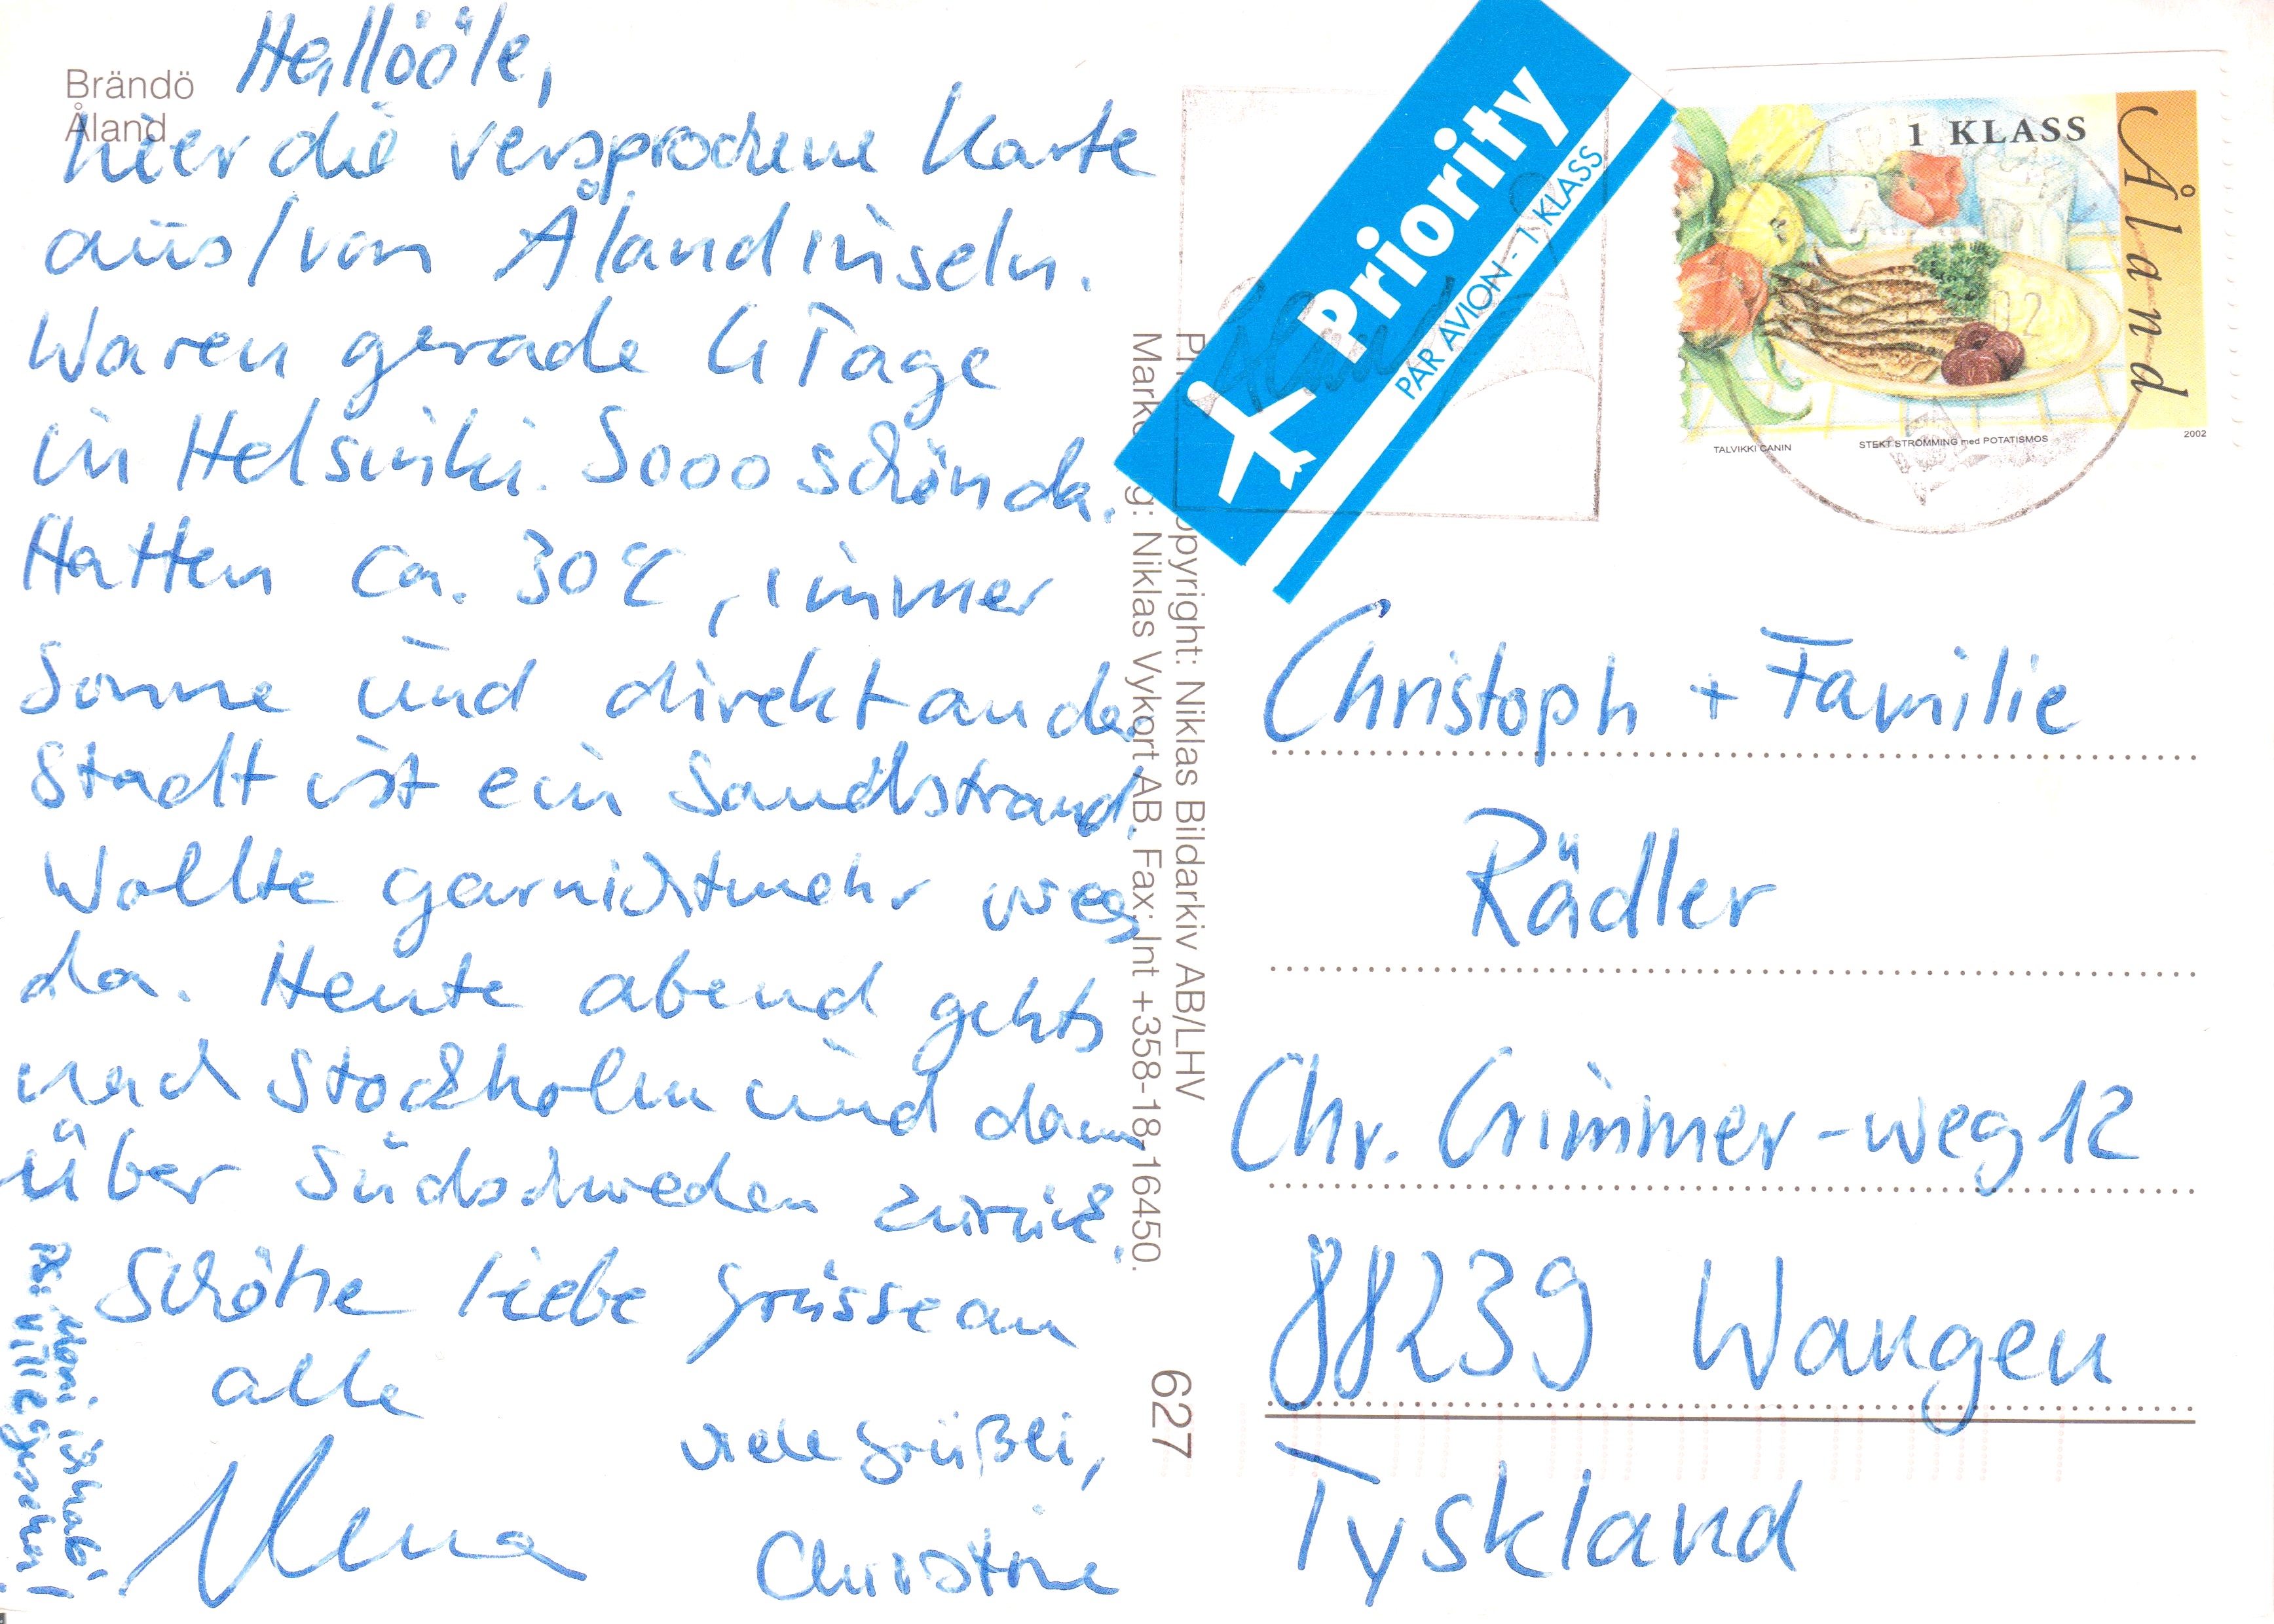 Brändö
Åland
Hallööle,
hier die versprochene Karte
aus/von Ålandinseln.
Waren gerade 4 Tage
in Helsinki. Sooo schön da.
Hatten ca. 30°C, immer
Sonne und direkt an der
Stadt ist ein Sandstrand.
Wollte garnichtmehr weg
da. Heute abend gehts
nach Stockholm und dann
über Südschweden zurück.
Schöne liebe Grüsse an
alle
viele Grüßli,
Christine
PS:
Priority
PAR AVION - 1 KLASS
1 KLASS
Åland
TALVIKKI CANIN
STEKT STRÖMMING med POTATISMOS
2002
opyright: Niklas Bildarkiv AB/LHV
Mark g: Niklas Vykort AB. Fax: Int +358-18-16450.
627
Christoph + Familie
Rädler
Chr. Grimmer-weg 12
88239 Wangen
Tyskland